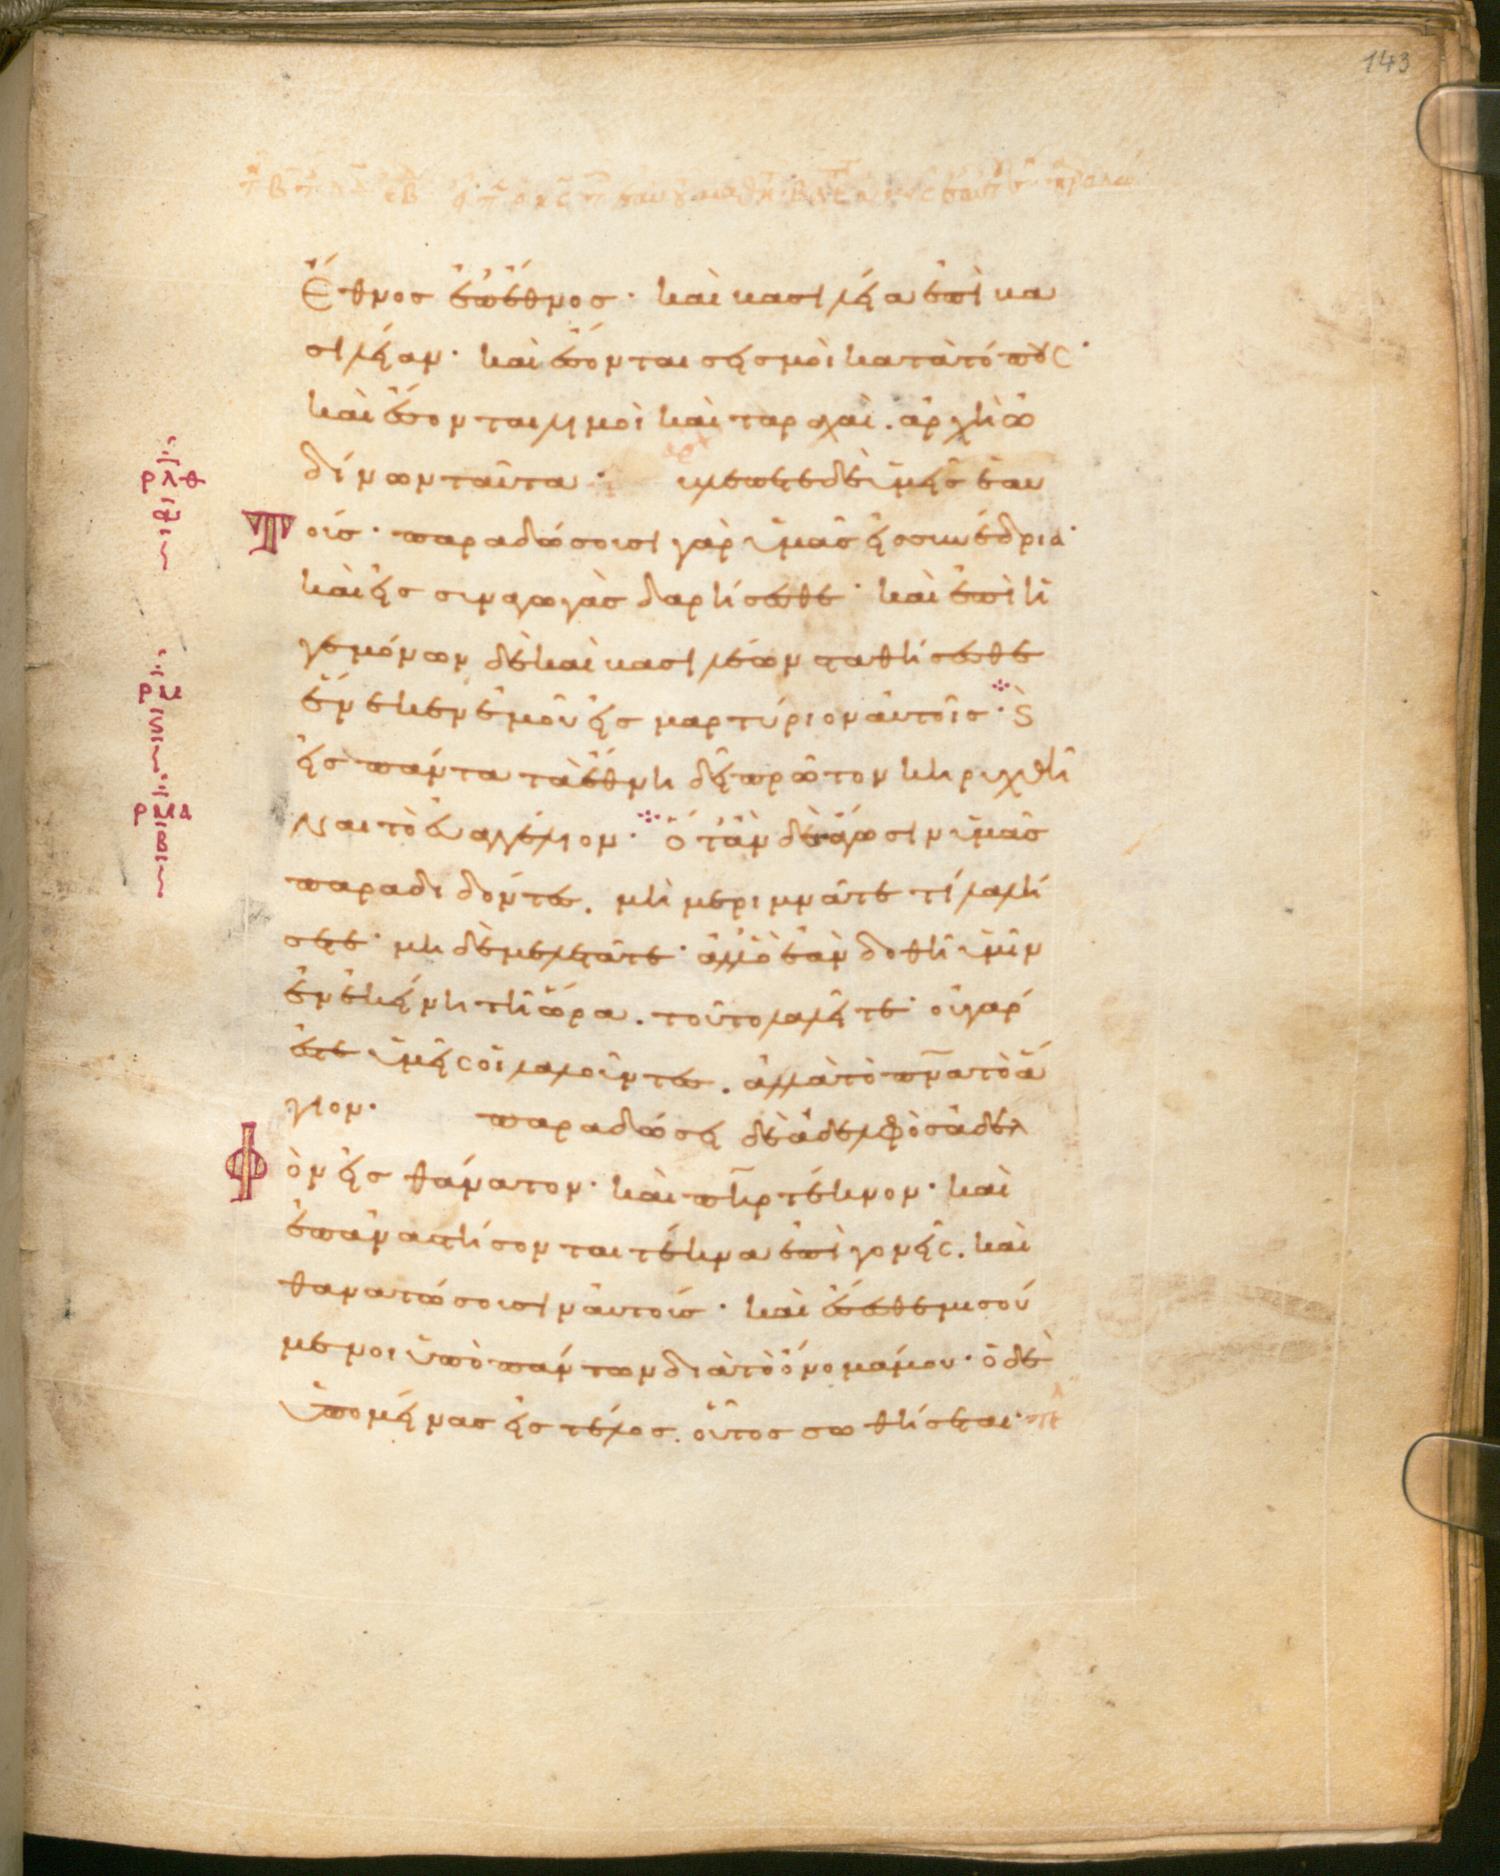 143
ἔθνος ἐπὶ ἔθνος· καὶ βασιλεία ἐπὶ βα
σιλείαν· καὶ ἔσονται σεισμοὶ κατὰ τόπους·
καὶ ἔσονται λιμοὶ καὶ ταραχαί. ἀρχὴ ὠ
δίνων ταῦτα· βλέπετε δὲ ὑμεῖς ἑαυ
τούς· παραδώσουσι γὰρ ὑμᾶς εἰς συνέδρια·
καὶ εἰς συναγωγὰς δαρήσεσθε· καὶ ἐπὶ ἡ
γεμόνων δὲ καὶ βασιλέων σταθήσεσθε
ἕνεκεν ἐμοῦ εἰς μαρτύριον αὐτοῖς· ϛ
εἰς πάντα τὰ ἔθνη δεῖ πρῶτον κηρυχθῆ
ναι τὸ εὐαγγέλιον· ὅταν δὲ ἄγωσιν ὑμᾶς
παραδιδόντες. μὴ μεριμνᾶτε τί λαλή
σετε· μηδὲ μελετᾶτε· ἀλλ' ὃ ἐὰν δοθῆ ὑμῖν
ἐν ἐκείνη τῆ ὥρα. τοῦτο λαλεῖτε· οὐ γάρ
ἐστε ὑμεῖς οἱ λαλοῦντες. ἀλλὰ τὸ πνα τὸ ἅ
γιον· παραδώσει δὲ ἀδελφὸς ἀδελ
φὸν εἰς θάνατον· καὶ πηρ τέκνον· καὶ
ἐπαναστήσονται τέκνα ἐπὶ γονεῖς. καὶ
θανατώσουσιν αὐτούς· καὶ ἔσεσθε μισού
μενοι ὑπὸ πάντων διὰ τὸ ὄνομά μου· ὁ δὲ
ὑπομείνας εἰς τέλος. οὗτος σωθήσεται·
ρλθ
α
ρμ
ϛ
ρμα
β